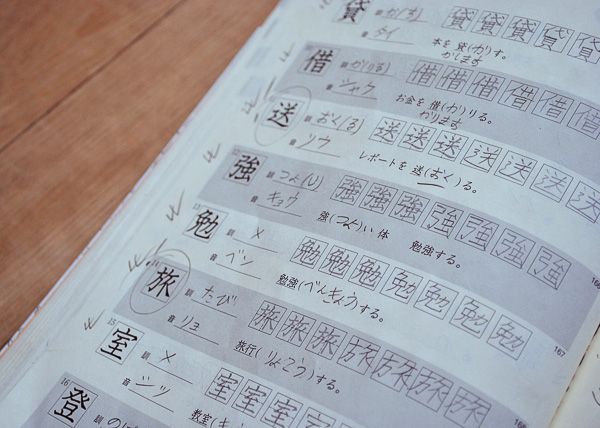 貸 訓 か(す) 貸 貸 貸 貸 貸
音 タイ 本を 貸(か)す。
かします
借 訓 か(りる) 借 借 借 借 借 借
音 シャク お金を 借(か)りる。
かります
送 訓 おく(る) 送 送 送 送 送 送 送
音 ソウ レポートを 送(おく)る。
強 訓 つよ(い) 強 強 強 強 強 強 強
音 キョウ 強(つよ)い 体 勉強する。
166
勉 訓 × 勉 勉 勉 勉 勉 勉 勉
音 ベン 勉強(べんきょう)する。
167
旅 訓 たび 旅 旅 旅 旅 旅 旅 旅
音 リョ 旅行(りょこう)する。
168
15 室 訓 × 室 室 室 室
音 シツ 教室(き
16 登 訓 のぼ